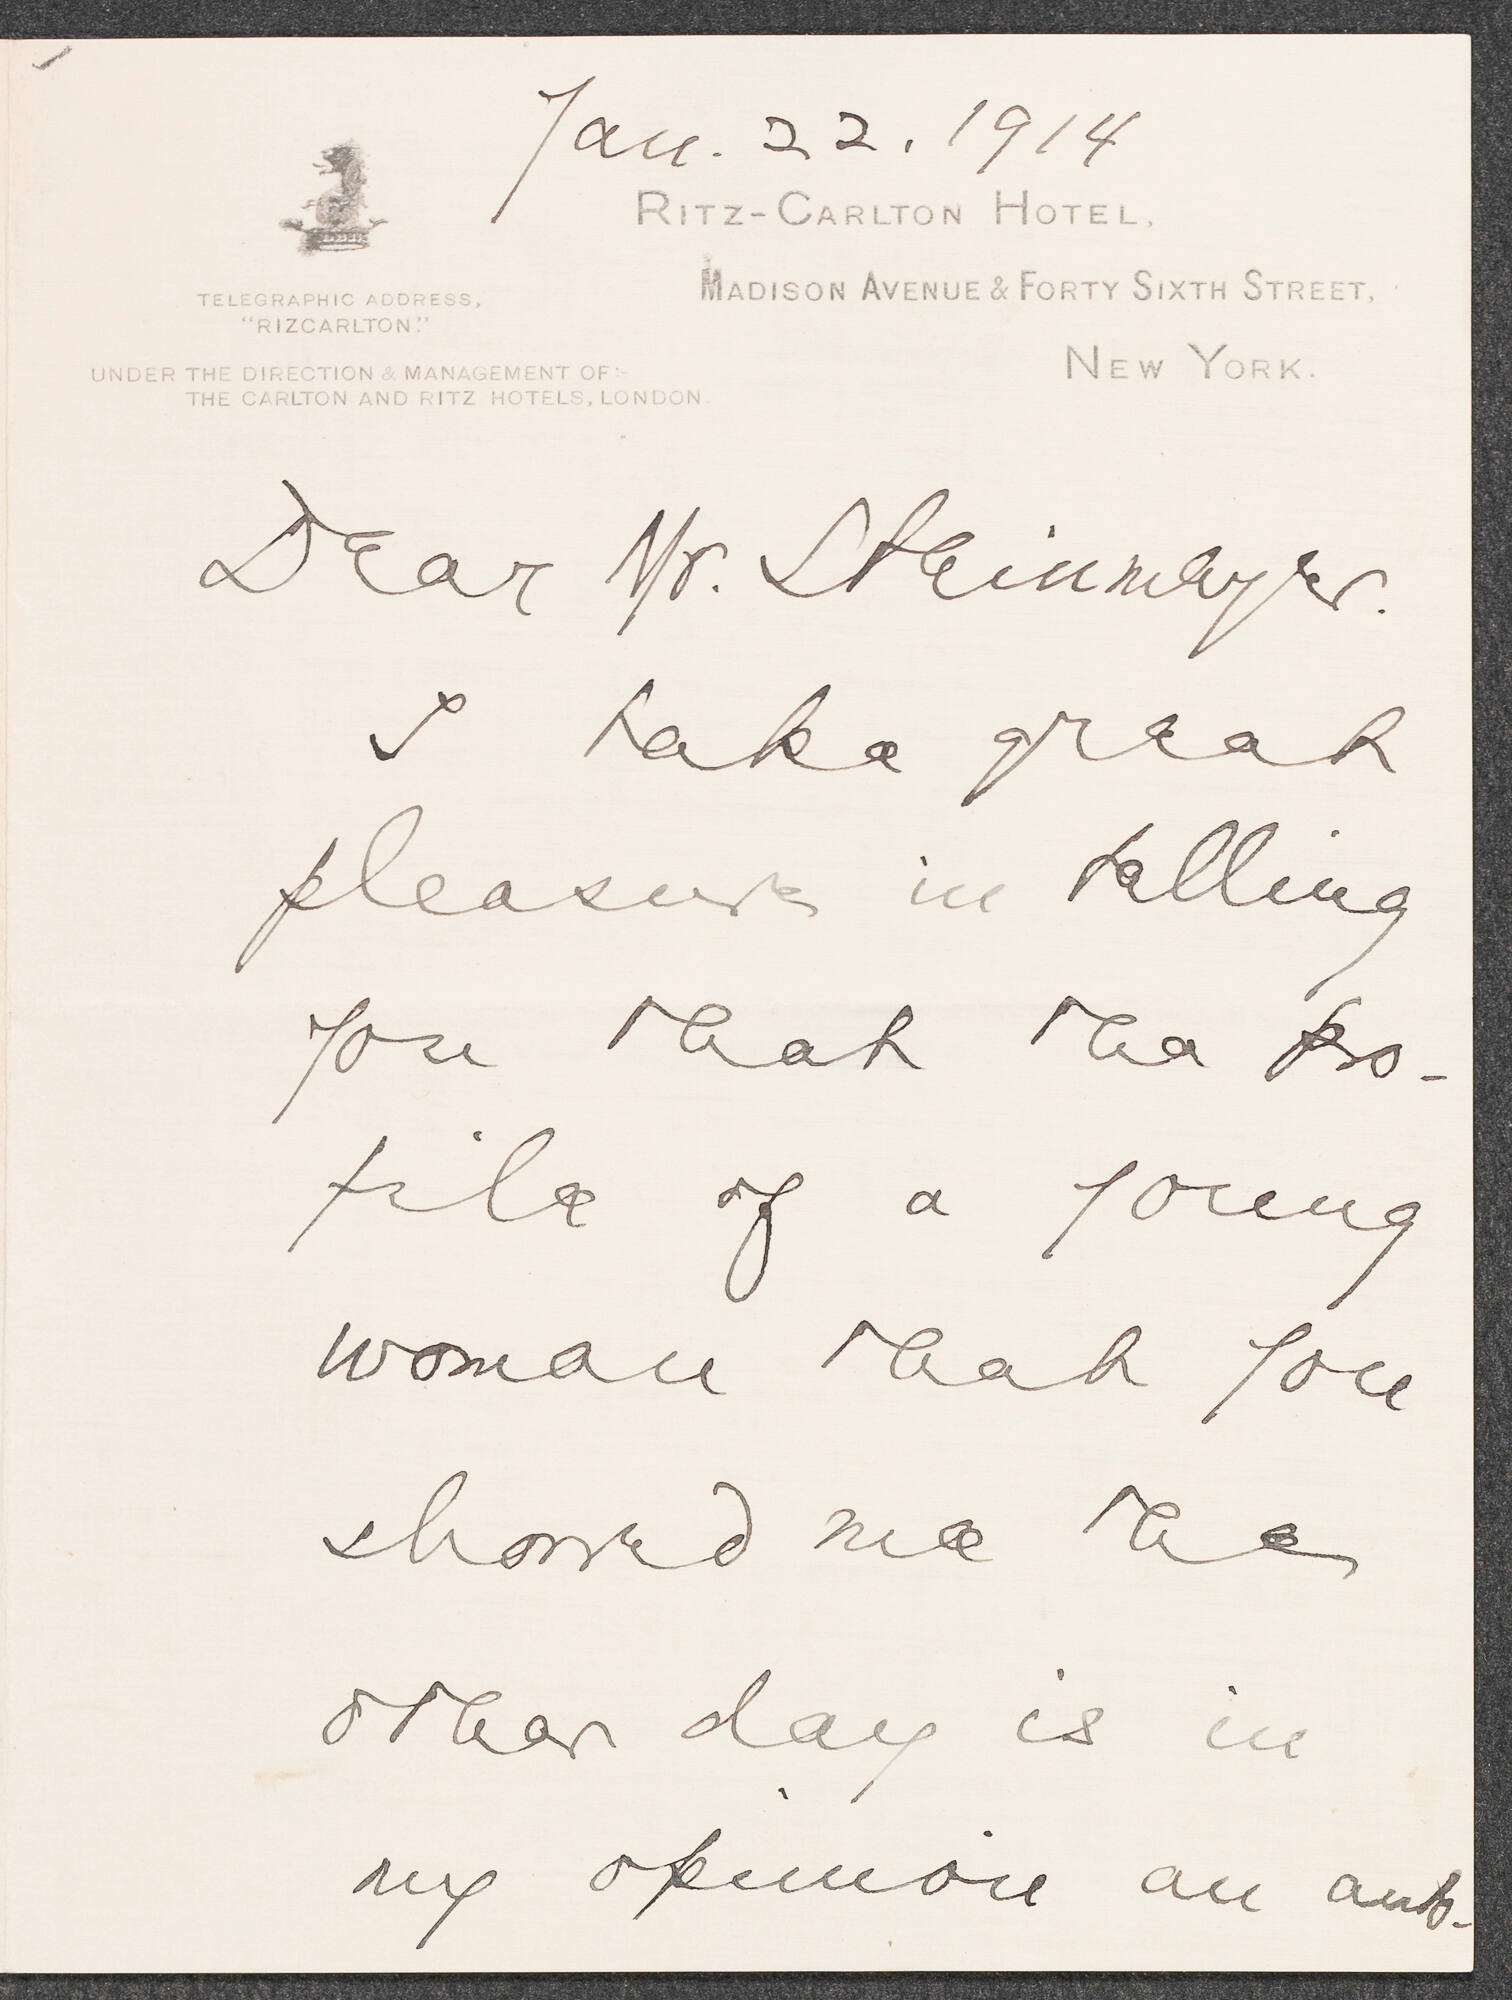 Jan. 22. 1914
RITZ-CARLTON HOTEL,
MADISON AVENUE & FORTY SIXTH STREET,
NEW YORK.
TELEGRAPHIC ADDRESS,
"RIZCARLTON."
UNDER THE DIRECTION & MANAGEMENT OF:-
THE CARLTON AND RITZ HOTELS, LONDON.
Dear Mr. Steinmeyer.
I take great
pleasure in telling
you that the pro-
file of a young
woman that you
showed me the
other day is in
my opinion an auth-